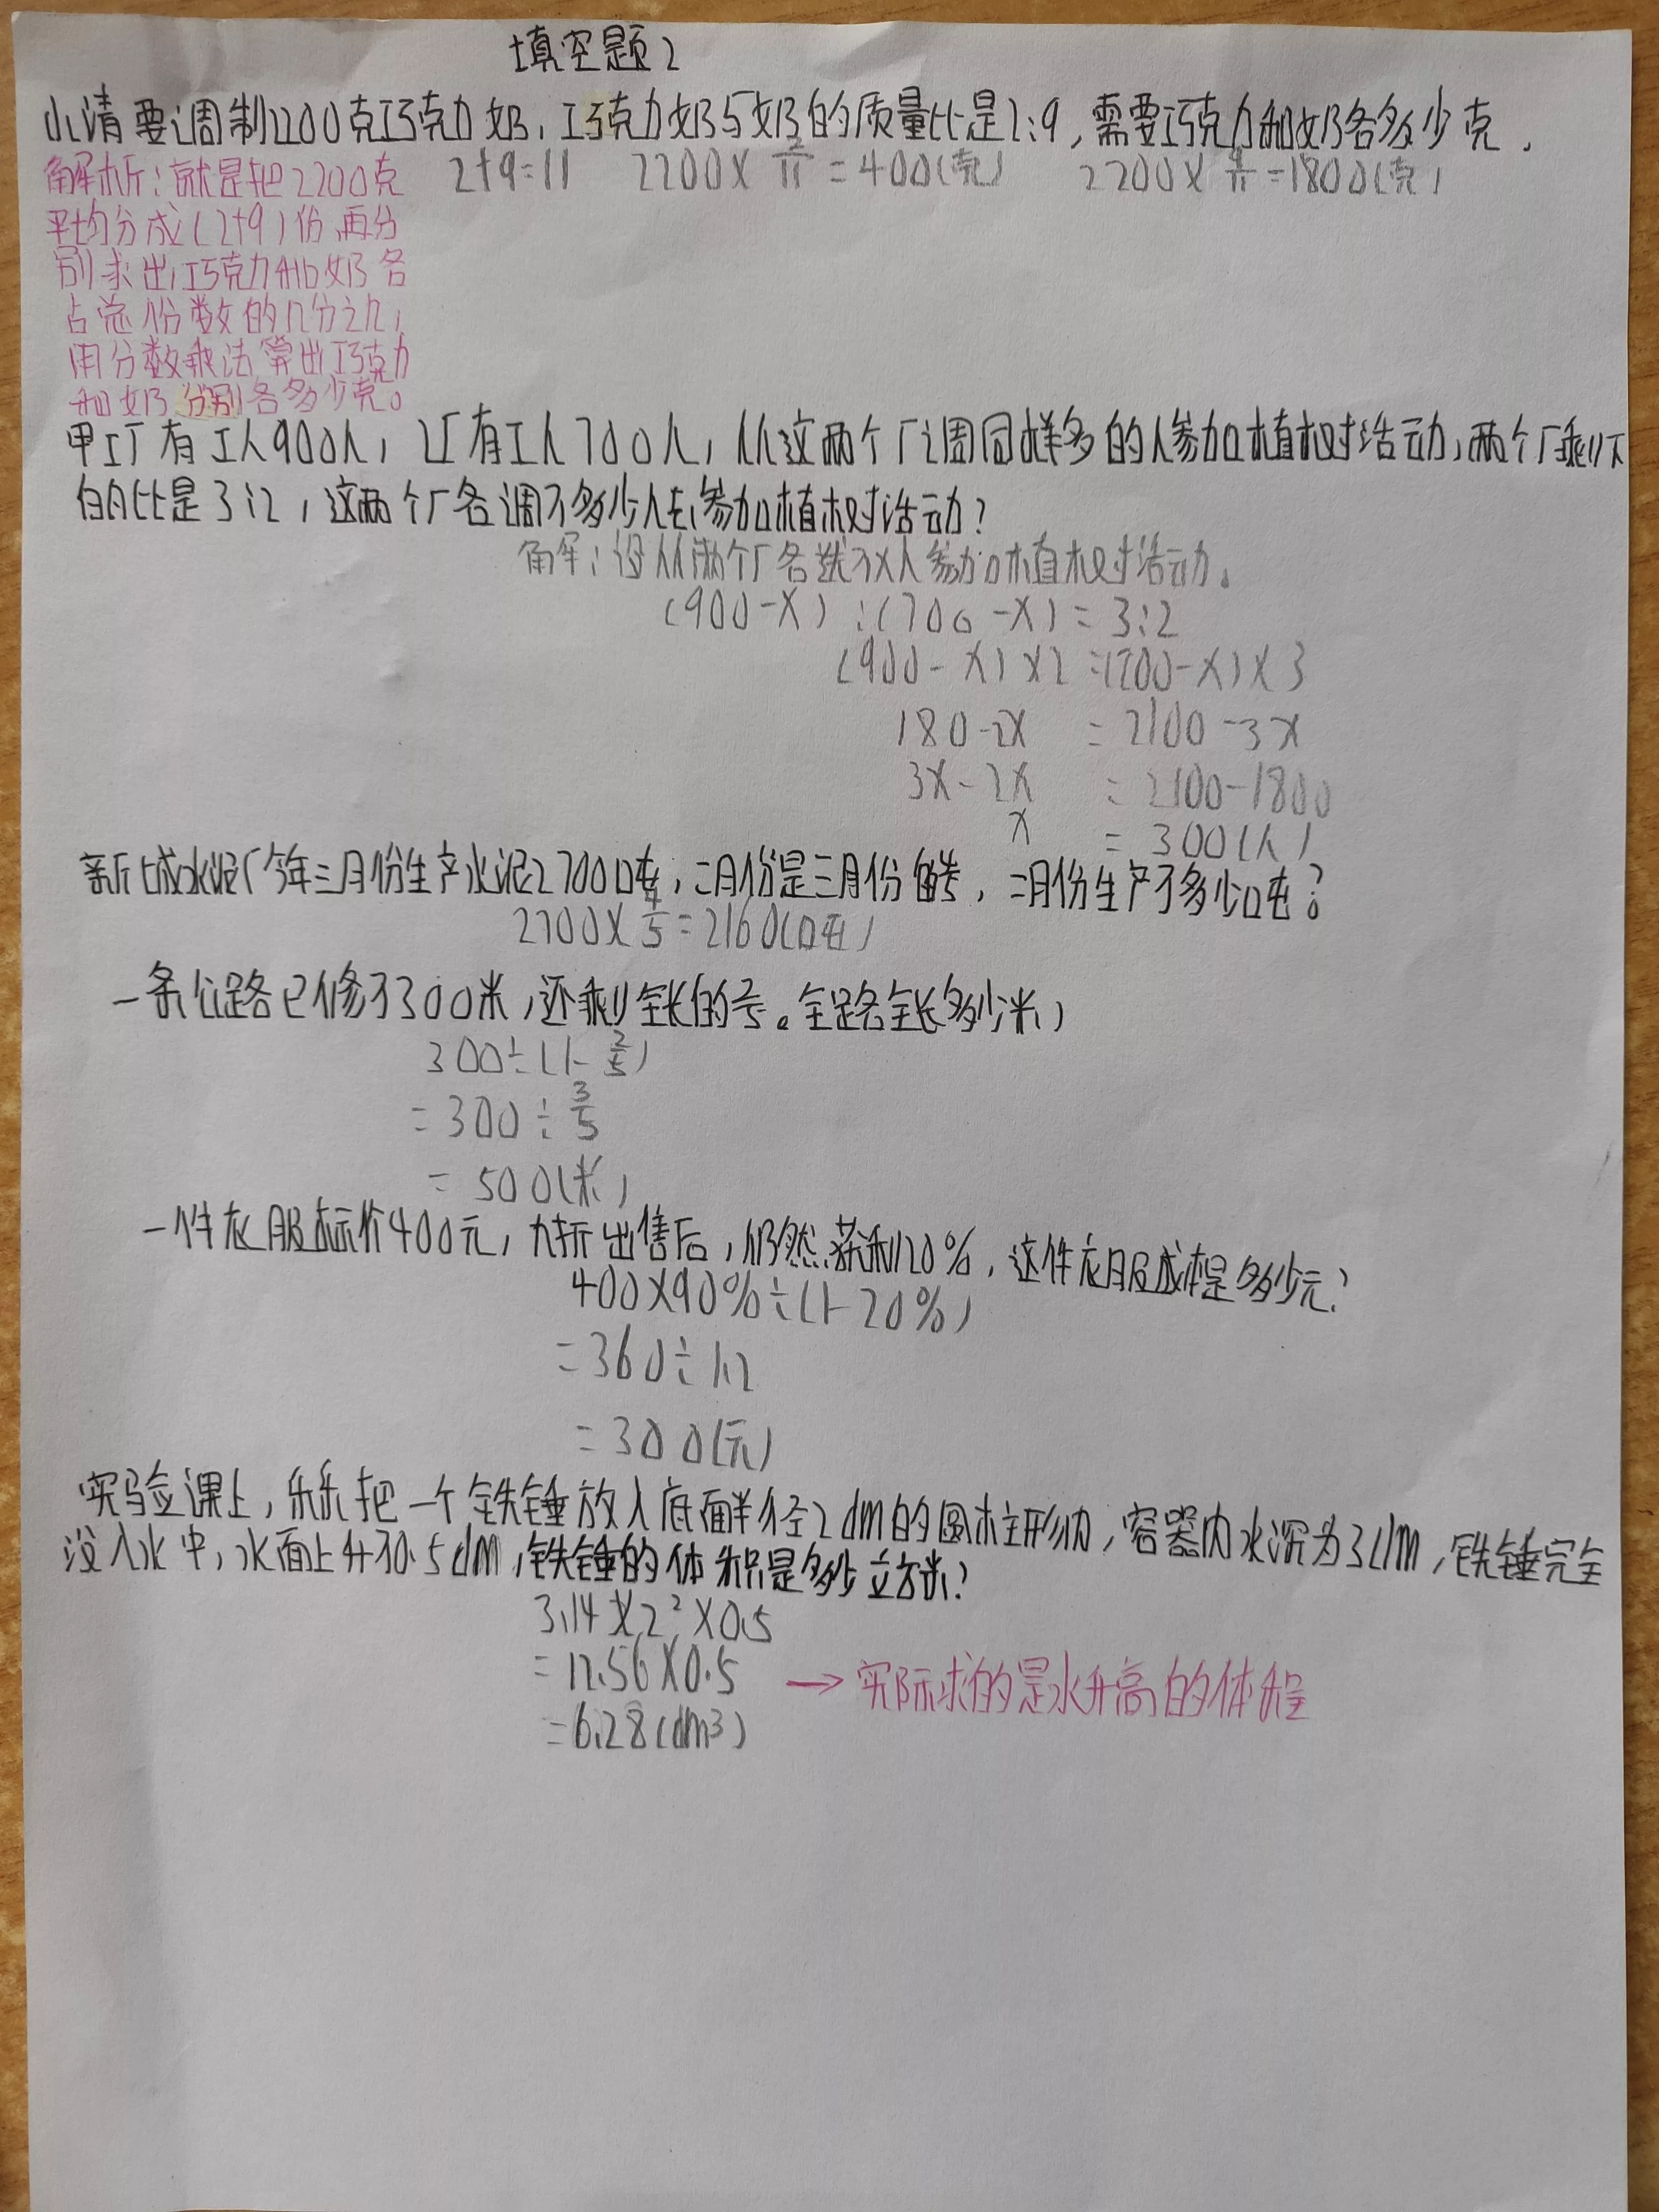 填空题2
小清要调制2200克巧克力奶,巧克力奶与奶的质量比是2:9,需要巧克力和奶各多少克.
解析:就是把2200克
平均分成(2+9)份,再分
别求出巧克力和奶各
占总份数的几分之几,
用分数乘法算出巧克力
和奶分别各多少克。
2+9=11 2200×2/11=400(克) 2200×9/11=1800(克)
甲工厂有工人900人,乙厂有工人700人,从这两个厂调同样多的人参加植树活动,两个厂剩下
的比是3:2,这两个厂各调了多少人去参加植树活动?
解:设从两个厂各选了x人参加植树活动。
(900-x):(700-x)=3:2
(900-x)×2=(700-x)×3
180-2x=2100-3x
3x-2x=2100-1800
x=300(人)
新城水泥厂今年三月份生产水泥2700吨,二月份是三月份的4/5,二月份生产了多少吨?
2700×4/5=2160(吨)
一条公路已修了300米,还剩全长的2/5。全路全长多少米)
300÷(1-2/5)
=300÷3/5
=500(米)
一件衣服标价400元,九折出售后,仍然获利20%,这件衣服成本是多少元?
400×90%÷(1-20%)
=360÷1.2
=300(元)
实验课上,乐乐把一个铁锤放入底面半径2dm的圆柱形内,容器内水深为3dm,铁锤完全
没入水中,水面上升了0.5dm,铁锤的体积是多少立方米?
3.14×2²×0.5
=12.56×0.5
=6.28(dm³)
→实际求的是水升高的体程